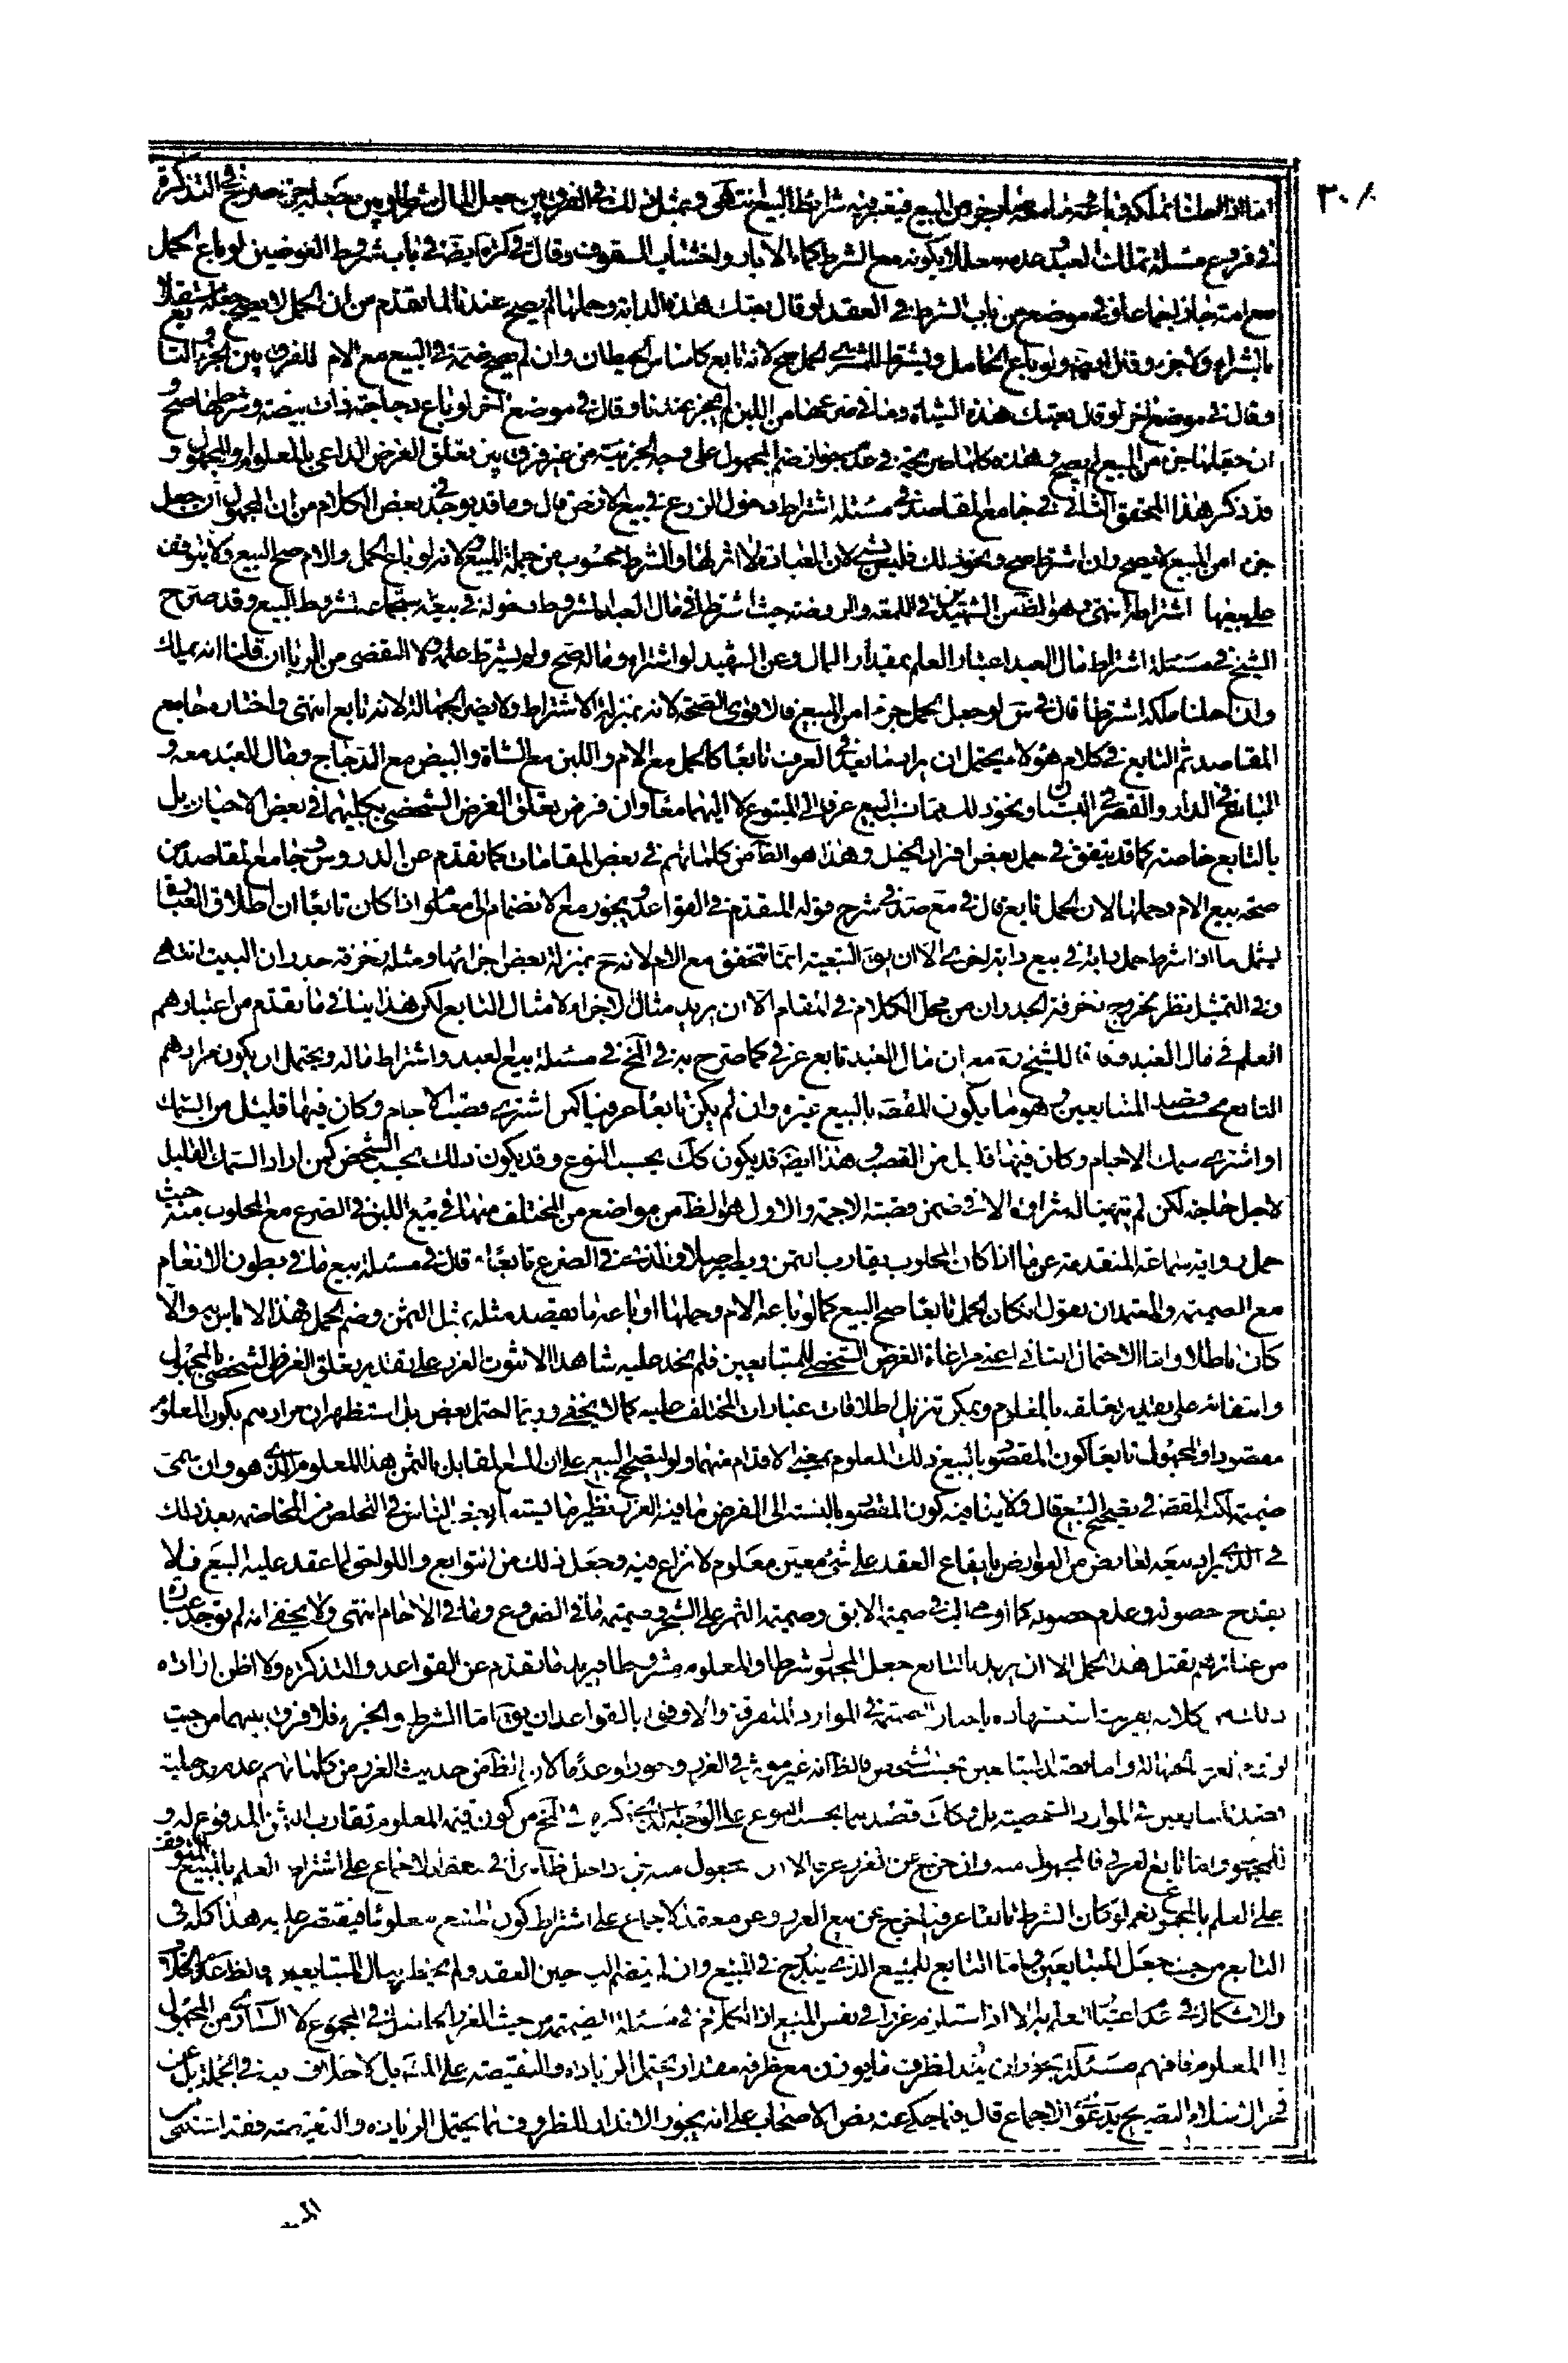 ٣٠٨
اما اذا احلنا تملكه وباعه وما معه صار جزء من المبيع فيعتبر فيه شرايط البيع انتهى وبمثل ذلك في الفرق بين جعل المال شرطا وبين جعله جزء صرح في التذكرة
في فروع مسئلة تملك العبد وعدمه معللا بكونه مع الشرط كماء الابار واخشاب السقوف وقال في كرة ايضا في باب شروط العوضين لو باع الحمل
مع امه جاز اجماعا وفي موضع من باب الشرط في العقد لو قال بعتك هذه الدابة وحملها لم يصح عندنا لما تقدم من ان الحمل لا يصح جعله مستقلا
بالشراء ولا جزء وقال ايضا ولو باع الحامل ويشترط للمشتري الحمل صح لانه تابع كاساس الحيطان وان لم يصح ضمه في البيع مع الام للفرق بين الجزء والتابع
وقال في موضع اخر لو قال بعتك هذه الشاة وما في ضرعها من اللبن لم يجز عندنا وقال في موضع آخر لو باع دجاجة ذات بيضة وشرطها صح و
ان جعلها جزء من المبيع لم يصح وهذه كلها صريحة في عدم جواز ضم المجهول على وجه الجزئية من غير فرق بين تعلق الغرض الداعي بالمعلوم او المجهول و
قد ذكر هذا المحقق الثاني في جامع المقاصد في مسئلة اشتراط دخول الزرع في بيع الارض قال وما قد يوجد في بعض الكلام من ان المجهول ان جعل
جزء من المبيع لا يصح وان اشترط صح ونحو ذلك فليس بشيء لان العبارة لا اثر لها والشرط محسوب من جملة المبيع ولانه لو باع الحمل والام صح البيع ولا يتوقف
على بيعها اشتراطه انتهى وهو الظ من الشهيدين في اللمعة والروضة حيث اشترطا في مال العبد المشروط دخوله في بيعه استجماعه لشروط البيع وقد صرح
الشيخ في مسئلة اشتراط مال العبد اعتبار العلم بمقدار المال وعن الشهيد لو اشتراه وماله صح ولم يشترط علمه ولا التقصي من الربا ان قلنا انه يملك
وان احلنا ملكه اشترطا قال في س لو جعل الحمل جزء من المبيع فالاقوى الصحة لانه بمنزلة الاشتراط ولا يضر الجهالة لانه تابع انتهى واختاره جامع
المقاصد ثم التابع في كلام هؤلاء يحتمل ان يراد ما يعد في العرف تابعا كالحمل مع الام واللبن مع الشاة والبيض مع الدجاج ومال العبد معه و
الباغ في الدار والقصر في البستان ونحو ذلك مما نسب البيع عرفا الى المتبوع لا اليهما معا وان فرض تعلق الغرض الشخصي بكليهما في بعض الاحيان بل
بالتابع خاصة كما قد يتفق في حمل بعض افراد الخيل وهذا هو الظ من كلماتهم في بعض المقامات كما تقدم عن الدروس وجامع المقاصد من
صحة بيع الام وحملها لان الحمل تابع قال في مع صد في شرح قوله المتقدم في القواعد ويجوز مع الانضمام الى معلوم اذا كان تابعا ان اطلاق العبارة
يشمل ما اذا اشرط حمل دابة في بيع دابة اخرى الا ان يق التبعية انما تتحقق مع الام لانه ح بمنزلة بعض اجزائها ومثله زخرفة جدران البيت انتهى
وفي التمثيل نظر لخروج زخرفة الجدران من محل الكلام في المقام الا ان يريد مثال الاجزاء لا مثال التابع لكن هذا ينافي ما تقدم من اعتبارهم
العلم في مال العبد وفاقا للشيخ ره مع ان مال العبد تابع عرفي كما صرح به في لخ في مسئلة بيع العبد واشتراط ماله ويحتمل ان يكون مرادهم
التابع بحسب قصد المتبايعين وهو ما يكون المقصود بالبيع غيره وان لم يكن تابعا عرفيا كمن اشترى قصب الاجام وكان فيها قليل من السمك
او اشترى سمك الاجام وكان فيها قليل من القصب وهذا ايضا قد يكون كك بحسب النوع وقد يكون ذلك بحسب الشخص كمن اراد السمك القليل
لاجل حاجة لكن لم يتهيأ له شراؤه الا في ضمن قصب الاجمة والاول هو الظ من مواضع من المختلف منها في بيع اللبن في الضرع مع المحلوب منه حيث
حمل رواية سماعة المتقدمة على ما اذا كان المحلوب يقارب الثمن ويصير اصلا والذي في الضرع تابعا وقال في مسئلة بيع ما في بطون الانعام
مع الضميمة والمعتمد ان نقول ان كان الحمل تابعا صح البيع كما لو باعه الام وحملها او باعه ما يقصد مثله بمثل الثمن وضم الحمل فهذا لا باس به والا
كان باطلا واما الاحتمال الثاني اعني مراعاة الغرض الشخصي للمتبايعين فلم نجد عليه شاهدا الا ثبوت الغرر على تقدير تعلق الغرض الشخصي بالمجهول
وانتفائه على تقدير تعلقه بالمعلوم ويمكن تنزيل اطلاقات عبارات المختلف عليه كما لا يخفى وربما احتمل بعض بل استظهر ان مرادهم بكون المعلوم
مقصودا والمجهول تابعا كون المقصود بالبيع ذلك المعلوم بمعنى الاقدام منهما ولو لتصحيح البيع على ان المبيع المقابل بالثمن هذا المعلوم الذي هو وان سمى
ضميمة لكنه المقصود في تصحيح البيع قال ولا ينافيه كون المقصود بالنسبة الى الغرض ما فيه الغرر نظير ما يستعمله بعض الناس في التخلص من المخاصمة بعد ذلك
في الذي يراد بيعه لعارض من العوارض بايقاع العقد على شئ معين معلوم لا نزاع فيه وجعل ذلك من التوابع واللواحق لما عقد عليه البيع فلا
يقدح حصوله وعدم حصوله كما اومى اليه في ضميمة الابق وضميمة الثمر على الشجر وضميمة ما في الضروع وما في الاجام انتهى ولا يخفى انه لم توجد عبارة
من عبائرهم يقبل هذا الحمل الا ان يريد بالتابع جعل المجهول شرطا والمعلوم مشروطا فيريد ما تقدم عن القواعد والتذكرة ولا اظن ارادة
ذلك من كلامه بقرينة استشهاده باخبار الضميمة في الموارد المتفرقة والاوفق بالقواعد ان يق اما الشرط والجزء فلا فرق بينهما من حيث
لزوم الغرر بالجهالة واما قصد المتبايعين بحسب الشخص فالظ انه غير مؤثر في الغرر وجودا وعدما لان الظ من حديث الغرر من كلماتهم عدم مدخلية
قصد المتبايعين في الموارد الشخصية بل وكك قصدهما بحسب النوع على الوجه الذي ذكره في لخ من كون قيمة المعلوم تقارب الثمن المدفوع له و
للمجهول واما التابع العرفي فالمجهول منه وان خرج عن الغرر عرفا الا ان المجعول منه جزء داخل ظاهرا في معقد الاجماع على اشتراط العلم بالمبيع المتوقف
على العلم بالمجموع نعم لو كان الشرط تابعا عرفيا خرج عن بيع الغرر وعن معقد الاجماع على اشتراط كون المبيع معلوما فيقتصر عليه هذا كله في
التابع من حيث جعل المتبايعين واما التابع للمبيع الذي يندرج في المبيع وان لم ينضم اليه حين العقد ولم يخطر ببال المتبايعين فالظ عدم الخلاف
والاشكال في عدم اعتبار العلم به الا اذا استلزم غررا في نفس المبيع اذ الكلام في مسئلة الضميمة من حيث الغرر الحاصل في المجموع لا الساري من المجهول
الى المعلوم فافهم مسئلة يجوز ان يندر لظرف ما يوزن مع ظرفه مقدار يحتمل الزيادة والنقيصة على المشهور بل لا خلاف فيه في الجملة بل عن
فخر الاسلام التصريح بدعوى الاجماع قال فيما حكى عنه نص الاصحاب على انه يجوز الاندار للظروف بما يحتمل الزيادة والنقيصة فقد استثنى